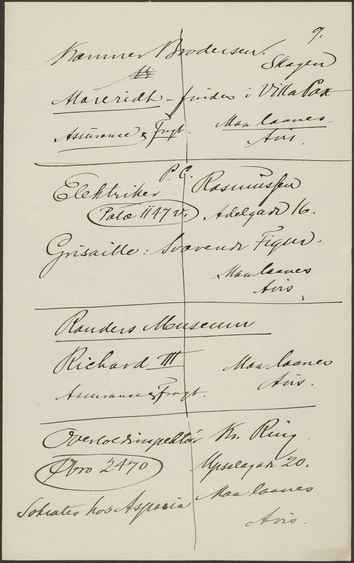 9.
Kammer Brodersen. Skagen
Mareridt - findes i Villa Pax
Assurance & Fragt. Maa laanes
Avis.
Elektriker P.C. Rasmussen
Palæ 1147 v. Adelgade 16.
Grisaille: Svævende Figur.
Maa laanes
Avis.
Randers Museum
Richard III Maa laanes
Assurance & Fragt. Avis.
Overlodsinspektør Kr. Ring
Øbro 2470 Upsalagade 20.
Sokrates hos Aspasia Maa laanes
Avis.